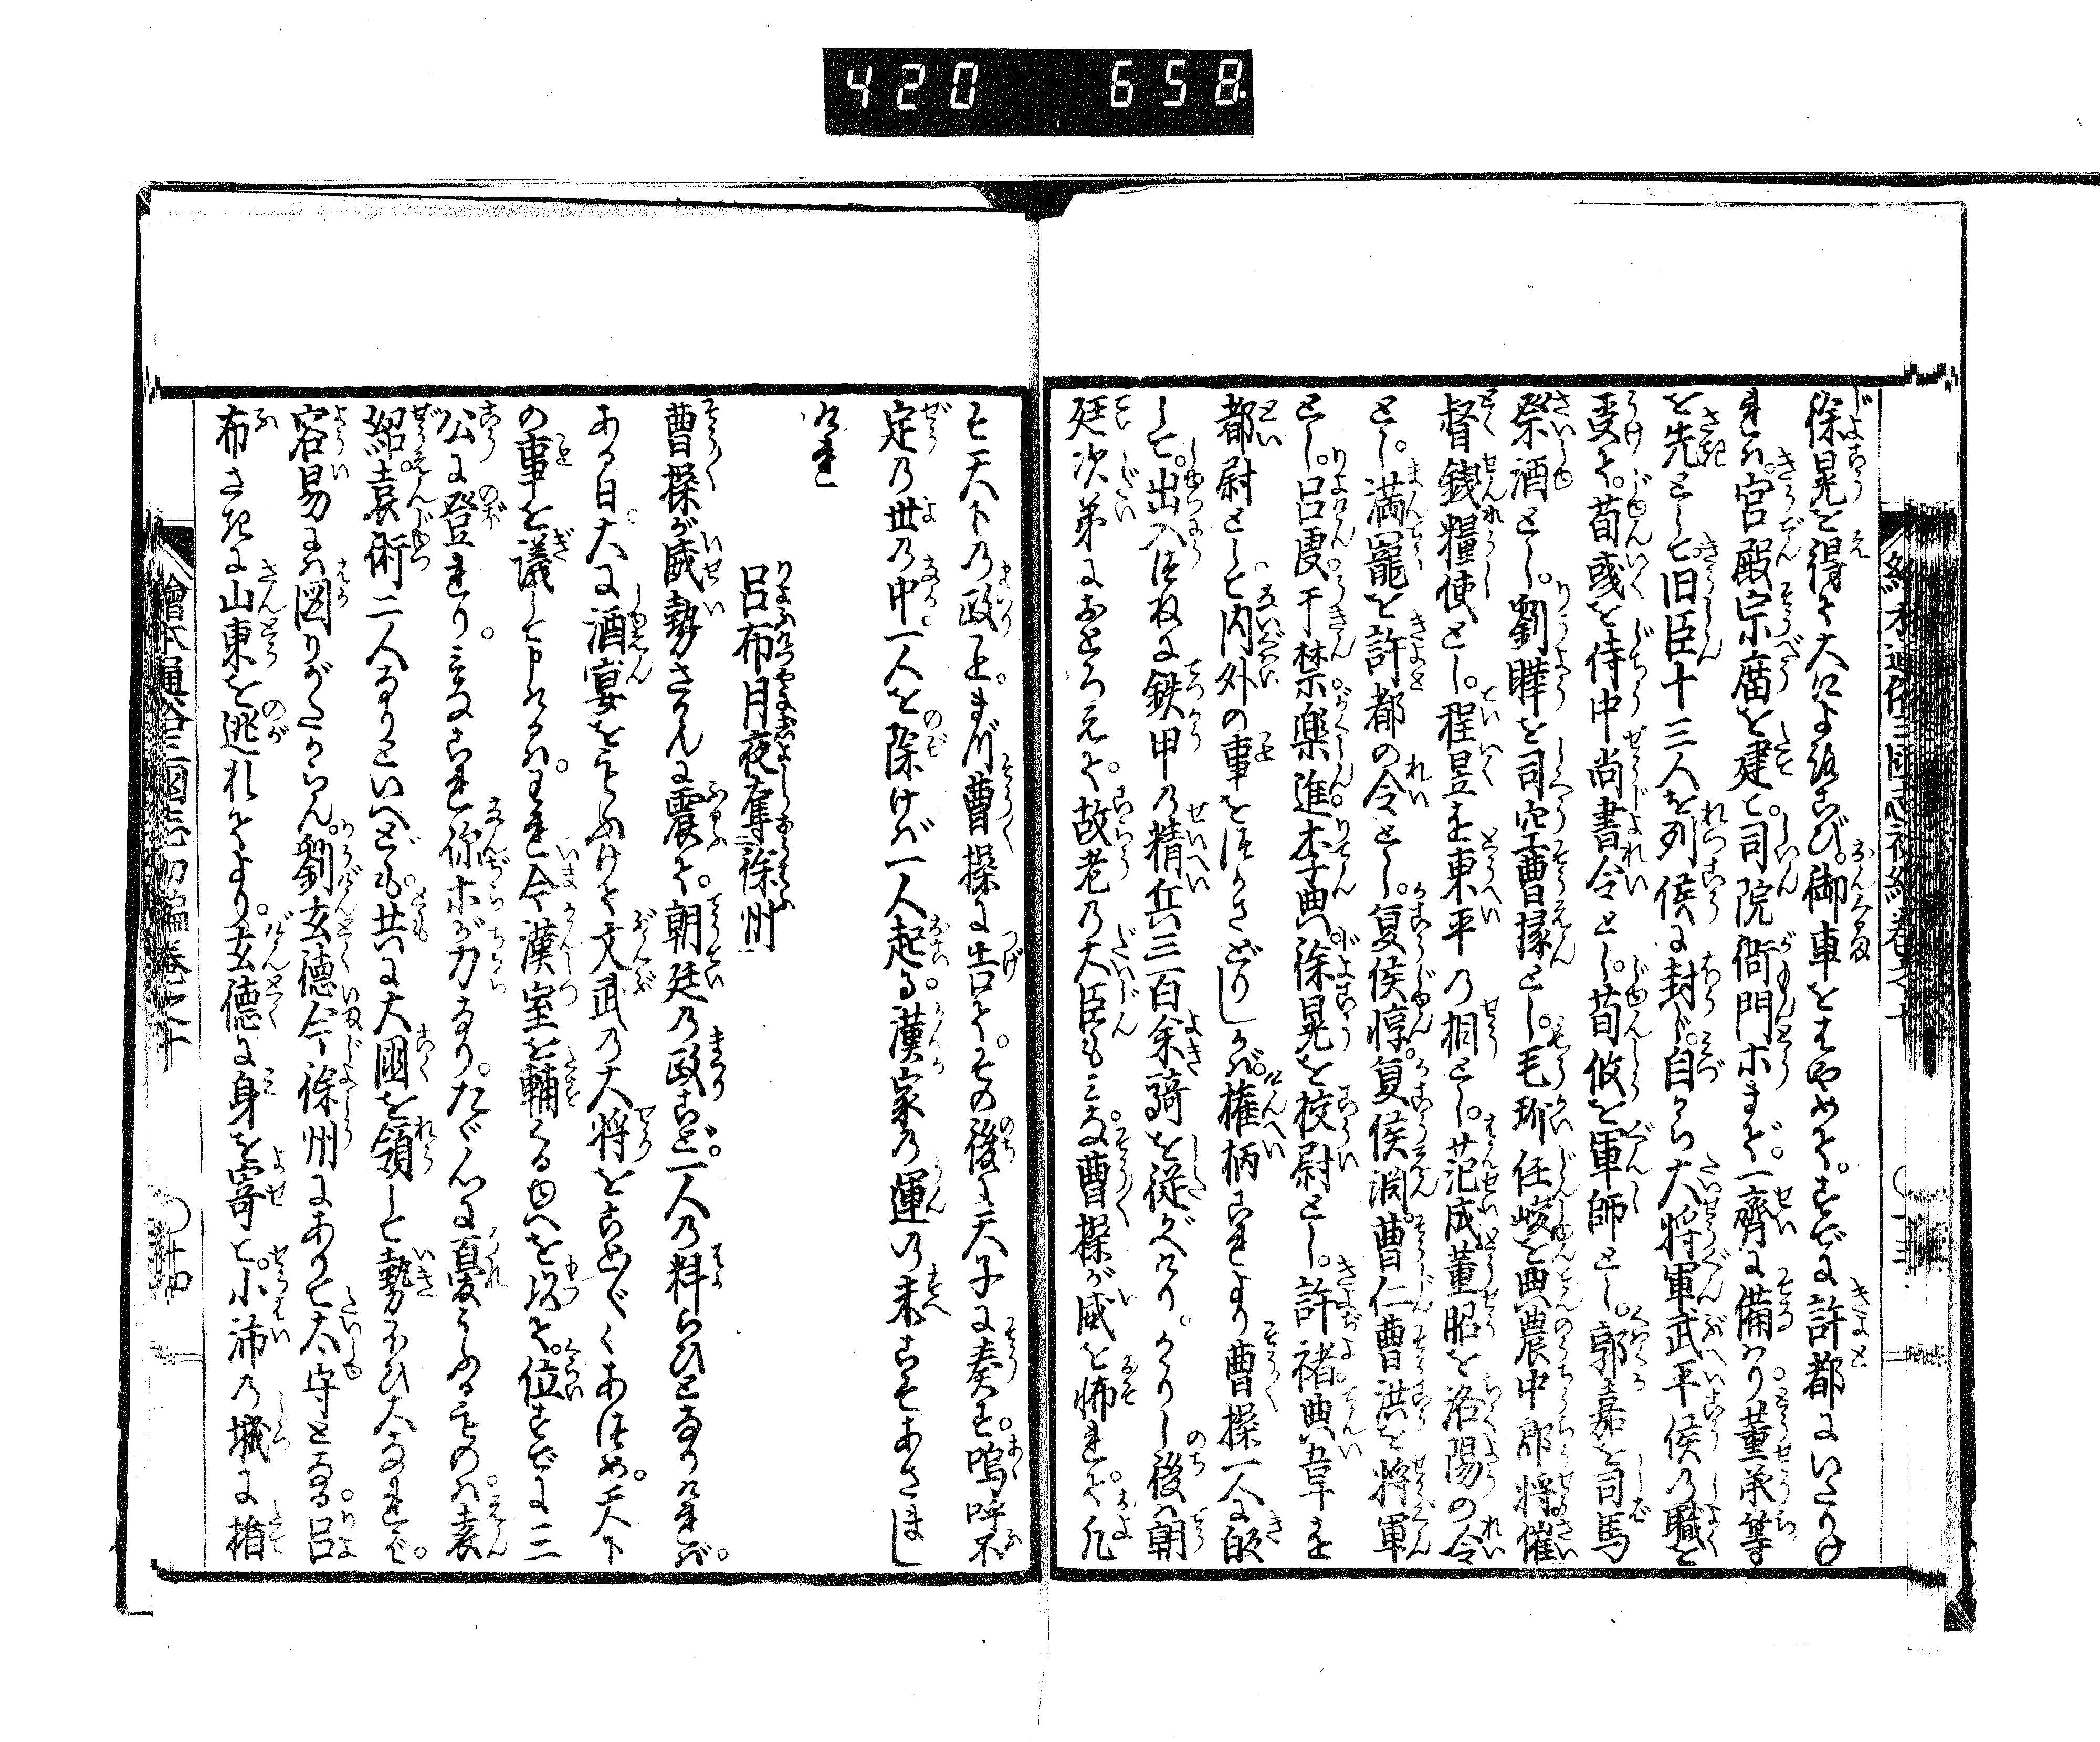 420 658
徐晃を得て大によろこび。御車をはやめて。すでに許都にいたりけ
れバ。宮殿宗廟を建て。司院衙門ホまで。一齊に備ハり。董承等
を先として。旧臣十三人を列侯に封じ。自から大将軍武平侯乃職を
受て。荀彧を侍中尚書令とし。荀攸を軍師とし。郭嘉を司馬
祭酒とし。劉曄を司空曹掾とし。毛玠任峻を典農中郎将催
督銭糧使とし。程昱を東平乃相とし。范成董昭を洛陽の令
とし。満寵を許都の令とし。夏侯惇。夏侯淵。曹仁曹洪を将軍
とし。呂虔。于禁。樂進李典。徐晃を校尉とし。許褚。典韋を
都尉として。内外の事をつかさどりしかバ。権柄これより曹操一人に皈
して。出入つねに鉄甲乃精兵三百余騎を従がへけり。かりし後ハ朝
廷次第におとろえて。故老乃大臣もミな。曹操が威を怖れて。凡
そ天下乃政と。まづ曹操に告て。その後に天子に奏す。嗚呼不
定乃世乃中。一人を除けバ一人起る。漢家乃運乃末こそあさまし
けれ
呂布月夜奪徐州
曹操が威勢さかんに震て。朝廷乃政こと。一人乃料らひとなりけれバ。
ある日大に酒宴をもふけて文武乃大将をことごとくあつめ。天下
の事を議して申けるハ。われ今漢室を輔くるゆへを以て。位すでに三
公に登れり。ミなこれ你ホが力なり。たゞ心に憂うるものハ。袁
紹。袁術二人なりといへども。共に大國を領して勢ひ大なれバ。
容易にハ図りがたからん。劉玄徳今徐州にありて太守となる。呂
布さきに山東を逃れてより。玄徳に身を寄せて。小沛乃城に楯
繪本通俗三國志初編巻之十 〇十三
繪本通俗三國志初編巻之十 〇十四